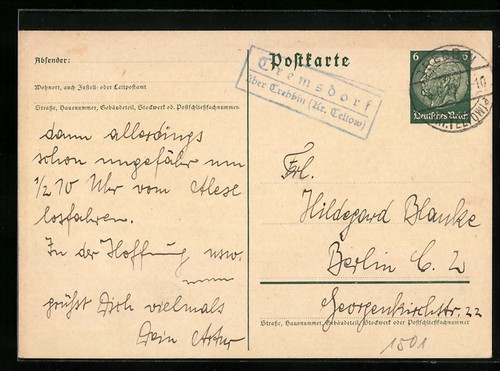 Absender:
Wohnort, auch Zustell- oder Leitpostamt
Straße, Hausnummer, Gebäudeteil, Stockwerk od. Postschließfachnummer
dann allerdings
schon ungefähr um
1/2 10 Uhr vom
losfahren.
In der Hoffnung usw.
grüßt Dich vielmals
Dein Artur
Postkarte
Cremsdorf
über Trebbin (Kr. Teltow)
6 6
Deutsches Reich
Frl.
Hildegard Blanke
Berlin C. 2
Georgenkirchstr. 22
Straße, Hausnummer, Gebäudeteil, Stockwerk oder Postschließfachnummer
1501